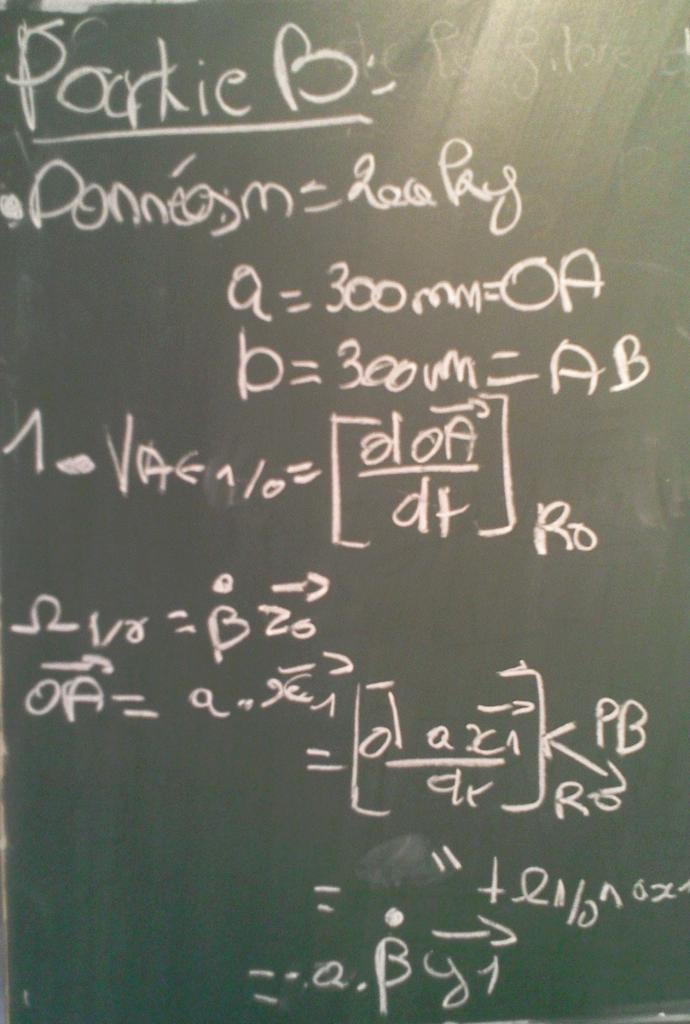 Partie B:
• Données m = 200 kg
a = 300mm = OA
b = 300m = AB
1. VA∈1/0 = [dOA/dt] R0
Ω1/0 = β̇ z0
OA = a. x1
= [d ax1/dt] < PB
R0
= " + Ω1/0 ∧ ax1
= a. β̇ y1